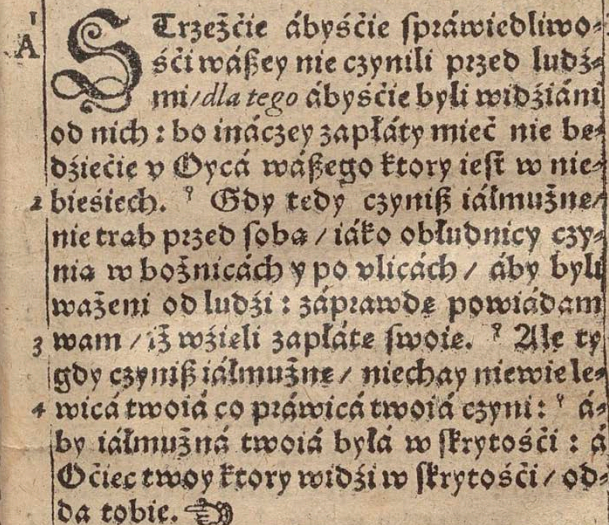 1
A STrzeżćie ábyśćie spráwiedliwo⸗
śći wászey nie czynili przed ludź⸗
mi/dla tego ábyśćie byli widźiáni
od nich : bo ináczey zapłáty mieć nie bę⸗
dźiećie v Oycá wászego ktory iest w nie⸗
2 bieśiech. Gdy tedy czynisz iáłmużnę/
nie trąb przed sobą / iáko obłudnicy czy⸗
nią w bożnicách y po vlicách / áby byli
ważeni od ludźi : záprawdę powiádam
3 wam / iż wźięli zapłátę swoię. Ale ty
gdy czynisz iáłmużnę / niechay niewie le⸗
4 wicá twoiá co práwicá twoiá czyni : á⸗
by iáłmużná twoiá byłá w skrytośći : á
Oćiec twoy ktory widźi w skrytośći / od⸗
da tobie. ☜